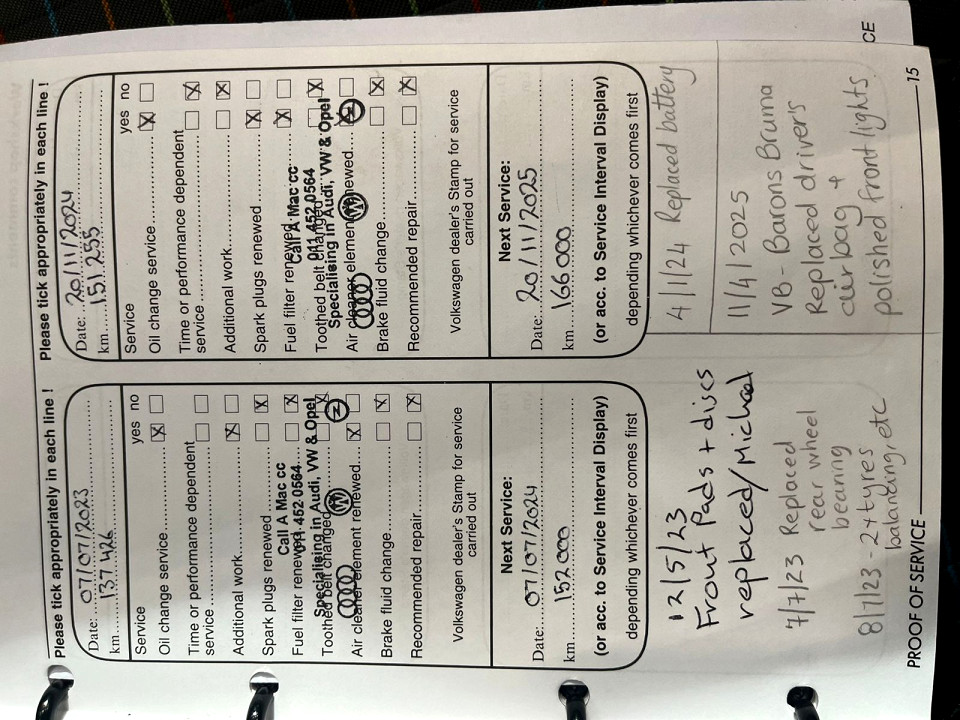 Please tick appropriately in each line !
Date: 07/07/2023
km 137 426
Service yes no
Oil change service
Time or performance dependent
service
Additional work
Spark plugs renewed
Fuel filter renewed
Toothed belt changed
Air cleaner element renewed
Brake fluid change
Recommended repair
Call A Mac cc
011 452 0564
Specialising in Audi, VW & Opel
Volkswagen dealer's Stamp for service
carried out
Next Service:
Date: 07/07/2024
km 152 000
(or acc. to Service Interval Display)
depending whichever comes first
12/5/23
Front Pads + discs
replaced/Michael
7/7/23 Replaced
rear wheel
bearing
8/7/23 - 2 + tyres
balancing etc
Please tick appropriately in each line !
Date: 20/11/2024
km 151 255
Service yes no
Oil change service
Time or performance dependent
service
Additional work
Spark plugs renewed
Fuel filter renewed
Toothed belt changed
Air cleaner element renewed
Brake fluid change
Recommended repair
Call A Mac cc
011 452 0564
Specialising in Audi, VW & Opel
Volkswagen dealer's Stamp for service
carried out
Next Service:
Date: 20/11/2025
km 166 000
(or acc. to Service Interval Display)
depending whichever comes first
4/1/24 Replaced battery
11/4/2025
VB - Barons Bruma
Replaced driver's
air bag +
polished front lights
PROOF OF SERVICE 15
CE